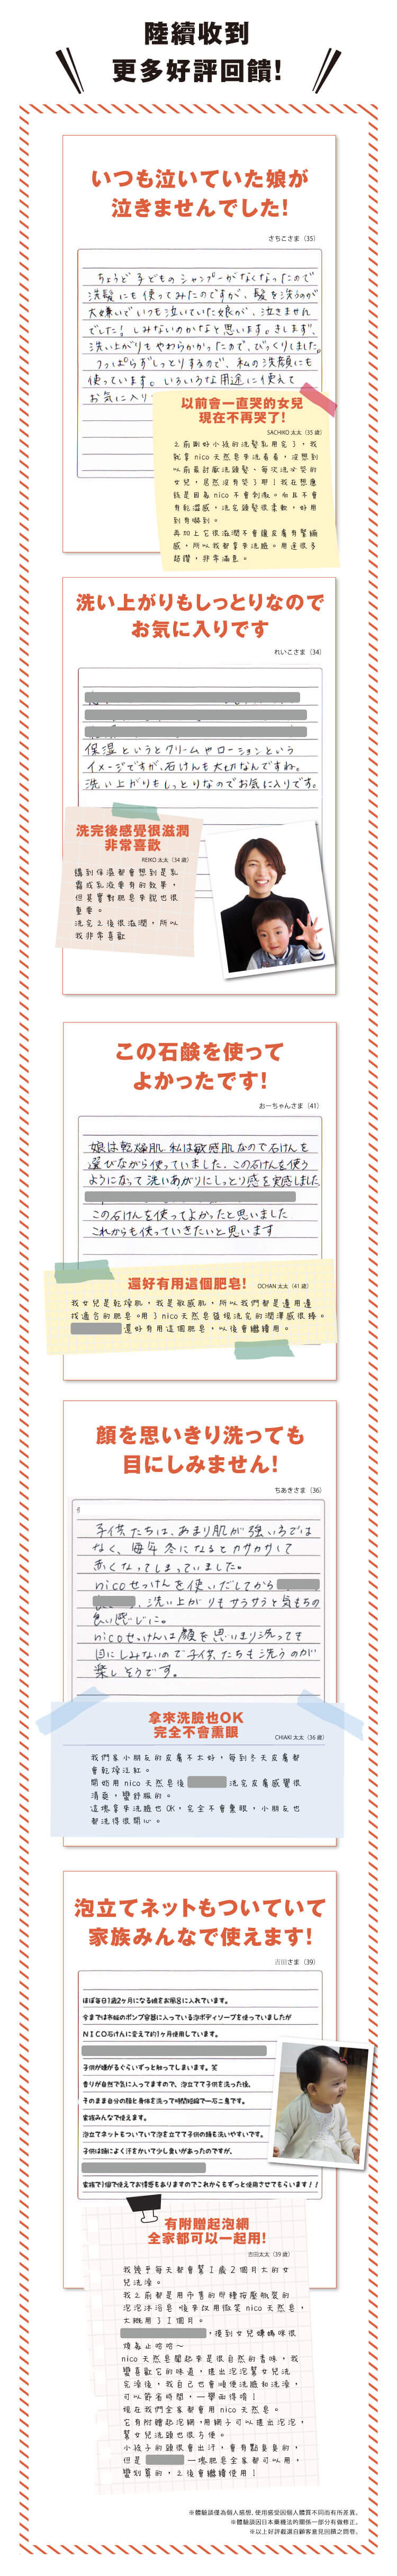 陸續收到
更多好評回饋!
いつも泣いていた娘が
泣きませんでした!
さちこさま（35）
ちょうど子どものシャンプーがなくなったので
洗髪にも使ってみたのですが、髪を洗うのが
大嫌いでいつも泣いていた娘が、泣きません
でした！しみないのかなと思います。きしまず、
洗い上がりもやわらかかったので、びっくりしました。
つっぱらずしっとりするので、私の洗顔にも
使っています。いろいろな用途に使えて
お気に入り
以前會一直哭的女兒
現在不再哭了!
SACHIKO 太太（35 歲）
之前剛好小孩的洗髮乳用完了，我
就拿 nico 天然皂來洗看看，沒想到
以前最討厭洗頭髮、每次洗必哭的
女兒，居然沒有哭了耶！我在想應
該是因為 nico 不會刺激。而且不會
有乾澀感，洗完頭髮很柔軟，好用
到有嚇到。
再加上它很滋潤不會讓皮膚有緊繃
感，所以我都拿來洗臉。用途很多
超讚，非常滿意。
洗い上がりもしっとりなので
お気に入りです
れいこさま（34）
保湿というとクリームやローションという
イメージですが、石けんも大切なんですね。
洗い上がりもしっとりなのでお気に入りです。
洗完後感覺很滋潤
非常喜歡
REIKO 太太（34 歲）
講到保濕都會想到是乳
霜或乳液要有的效果，
但其實對肥皂來說也很
重要。
洗完之後很滋潤，所以
我非常喜歡
この石鹸を使って
よかったです!
おーちゃんさま（41）
娘は乾燥肌、私は敏感肌なので石けんを
選びながら使っていました。この石けんを使う
ようになって洗いあがりにしっとり感を実感しました
この石けんを使ってよかったと思いました
これからも使っていきたいと思います
還好有用這個肥皂!
OCHAN 太太（41 歲）
我女兒是乾燥肌，我是敏感肌，所以我們都是邊用邊
找適合的肥皂。用了 nico 天然皂發現洗完的潤澤感很棒。
還好有用這個肥皂，以後會繼續用。
顔を思いきり洗っても
目にしみません!
ちあきさま（36）
子供たちは、あまり肌が強いうでは
なく、毎年冬になるとカサカサして
赤くなってしまっていました。
nicoせっけんを使いだしてから
、洗い上がりもサラサラと気もちの
良い感じに。
nicoせっけんは顔を思いきり洗っても
目にしみないので子供たちも洗うのが
楽しそうです。
拿來洗臉也OK
完全不會熏眼
CHIAKI 太太（36 歲）
我們家小朋友的皮膚不太好，每到冬天皮膚都
會乾燥泛紅。
開始用 nico 天然皂後
洗完皮膚感覺很
清爽，蠻舒服的。
這塊拿來洗臉也 OK，完全不會熏眼，小朋友也
都洗得很開心。
泡立てネットもついていて
家族みんなで使えます!
吉田さま（39）
ほぼ毎日1歳2ヶ月になる娘をお風呂に入れています。
今までは市販のポンプ容器に入っている泡ボディソープを使っていましたが
NICO石けんに変えて約1ヶ月使用しています。
子供が嫌がるぐらいずっと触ってしまいます。笑
香りが自然で気に入ってますので、泡立てて子供を洗った後、
そのまま自分の顔と身体を洗って時間短縮で一石二鳥です。
家族みんなで使えます。
泡立てネットもついていて泡を立てて子供の頭も洗いやすいです。
子供は頭によく汗をかいて少し臭いがあったのですが、
家族で1個で使えてお得感もありますのでこれからもずっと使用させてもらいます！！
有附贈起泡網
全家都可以一起用!
吉田太太（39 歲）
我幾乎每天都會幫 1 歲 2 個月大的女
兒洗澡。
我之前都是用市售的那種按壓瓶裝的
泡泡沐浴皂 後來改用微笑 nico 天然皂，
大概用了 1 個月。
，摸到女兒嫌媽咪很
煩為止哈哈～
nico 天然皂聞起來是很自然的香味，我
蠻喜歡它的味道，搓出泡泡幫女兒洗
完澡後，我自己也會順便洗臉和洗澡，
可以節省時間，一舉兩得唷！
現在我們全家都會用 nico 天然皂。
它有附贈起泡網，用網子可以搓出泡泡，
幫女兒洗頭也很方便。
小孩子的頭很會出汗，會有點臭臭的，
但是
一塊肥皂全家都可以用，
蠻划算的，之後會繼續使用！
※體驗談僅為個人感想，使用感受因個人體質不同而有所差異。
※體驗談因日本藥機法的關係一部分有做修正。
※以上好評截選自顧客意見回饋之問卷。